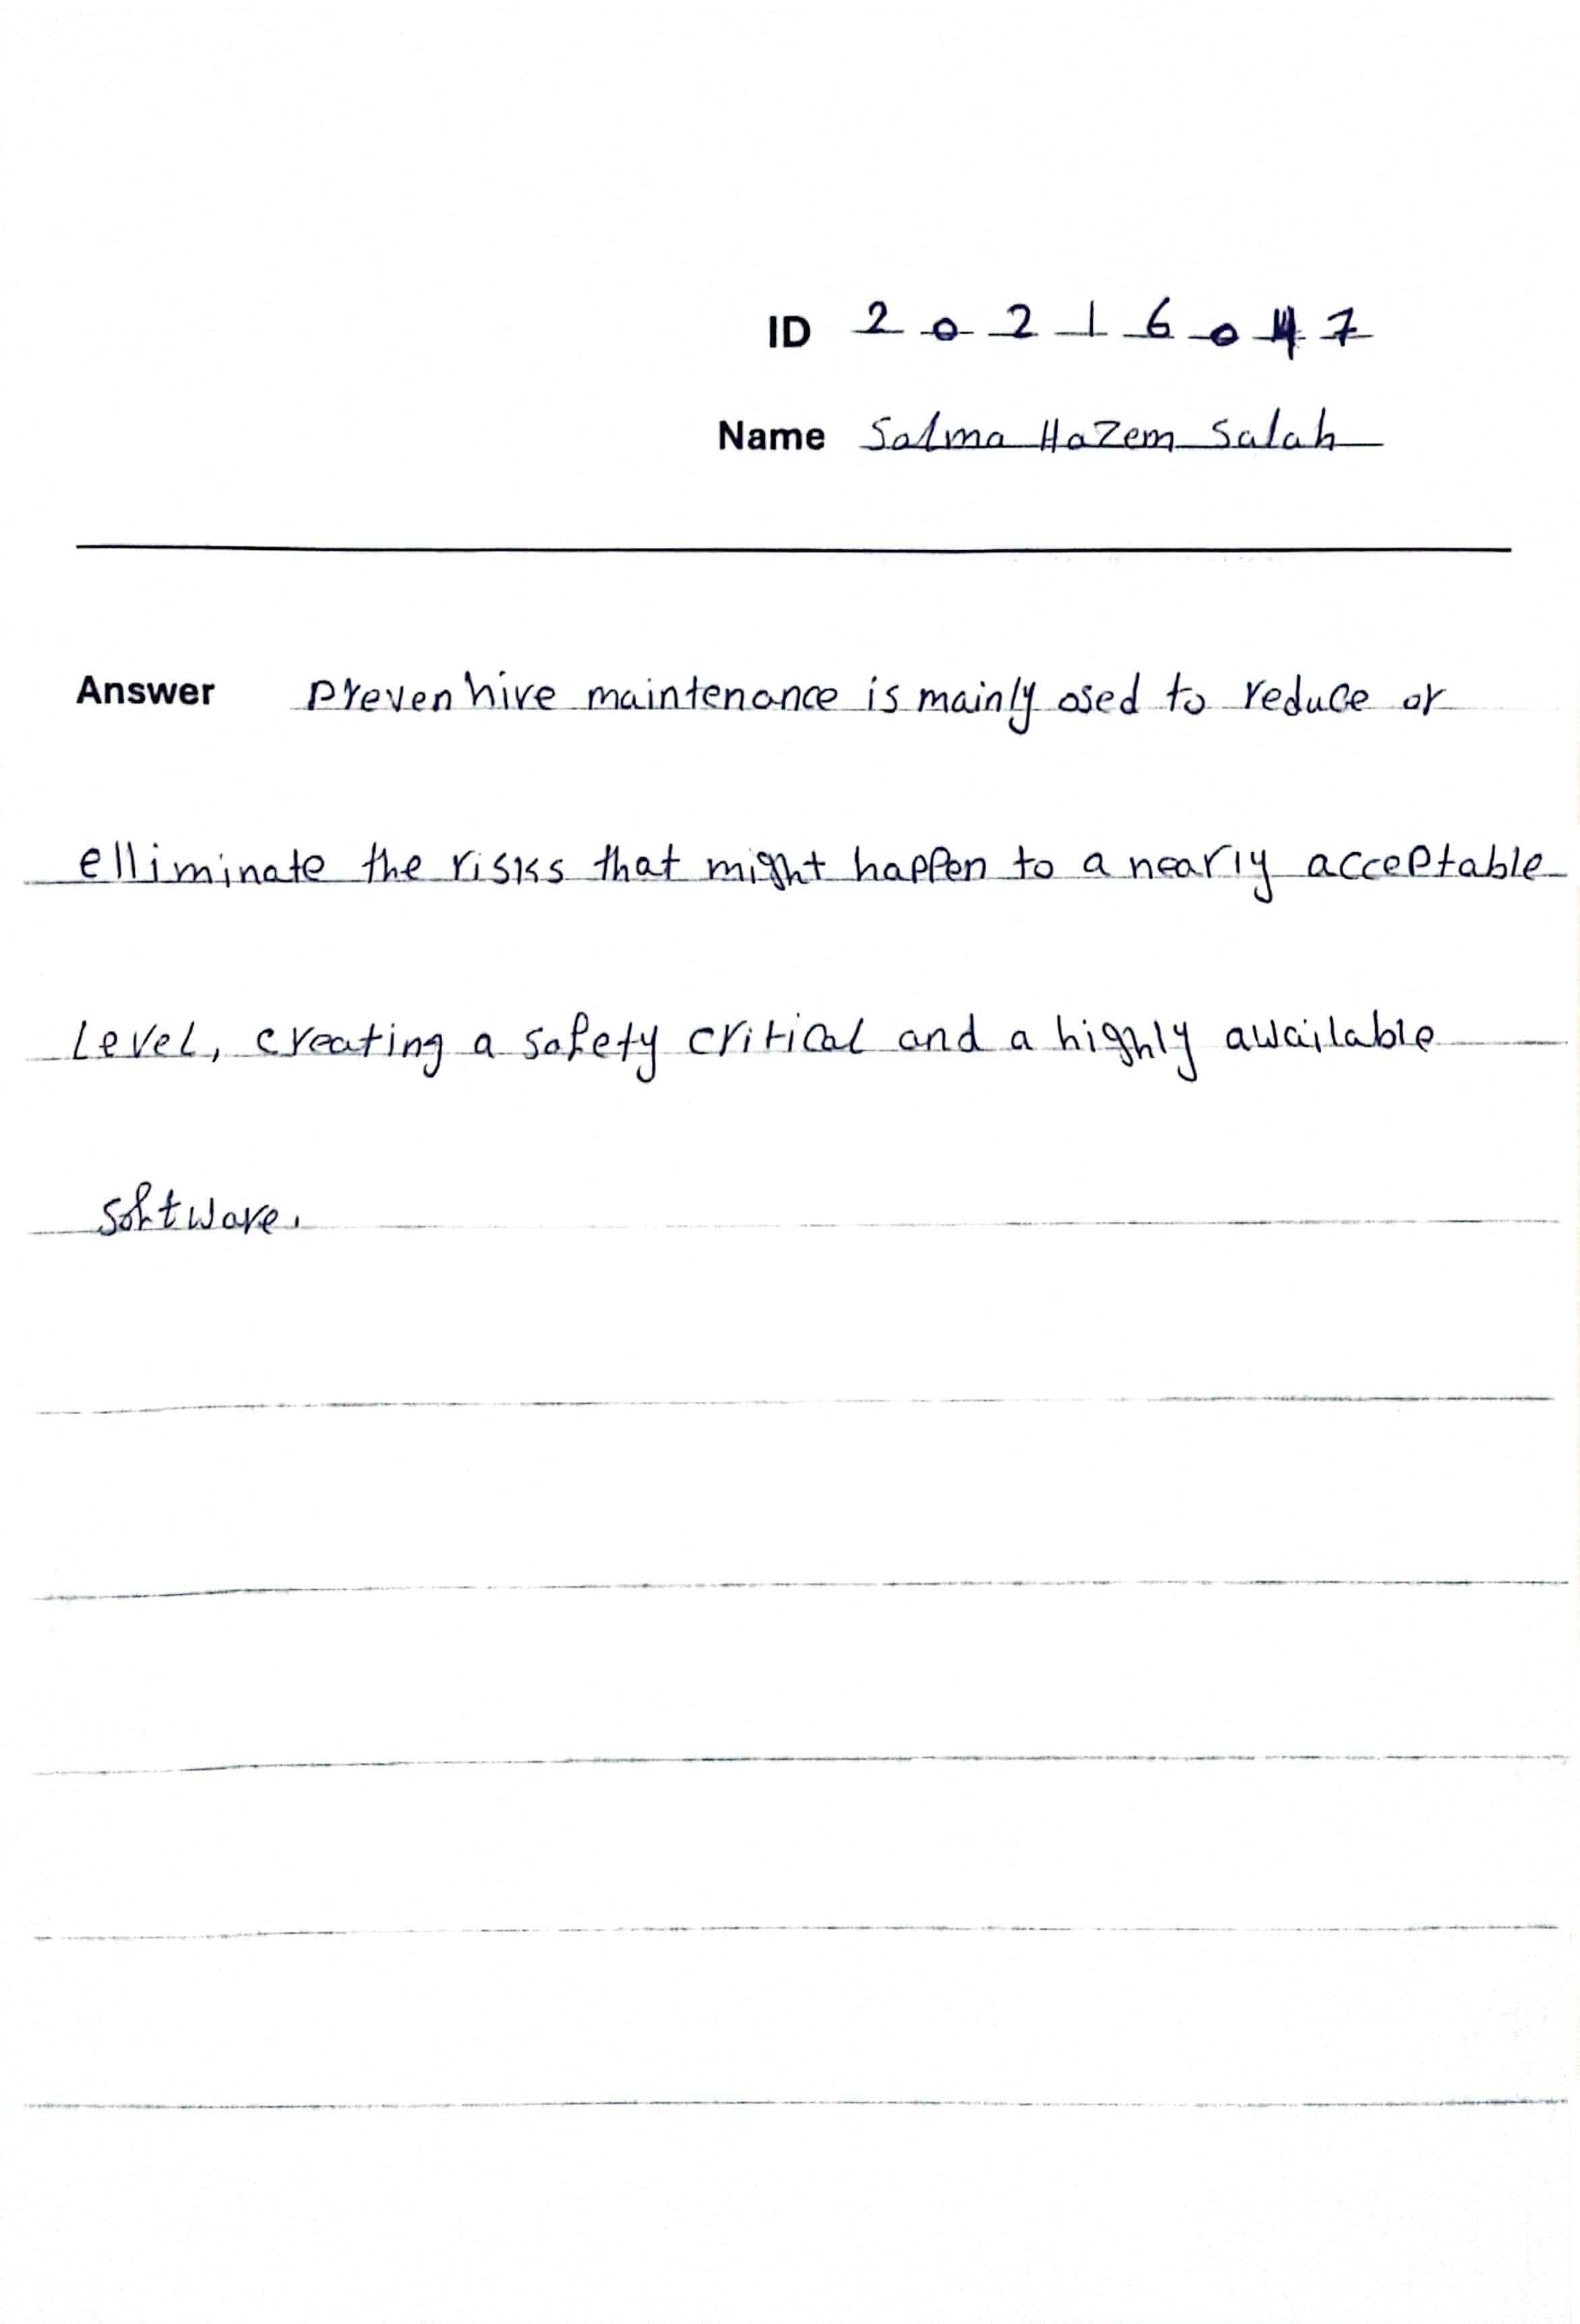 ID 2 0 2 1 6 0 4 7
Name Salma Hazem Salah
Answer Preventive maintenance is mainly used to reduce or
elliminate the risks that might happen to a nearly acceptable
Level, creating a safety critical and a highly available
software.